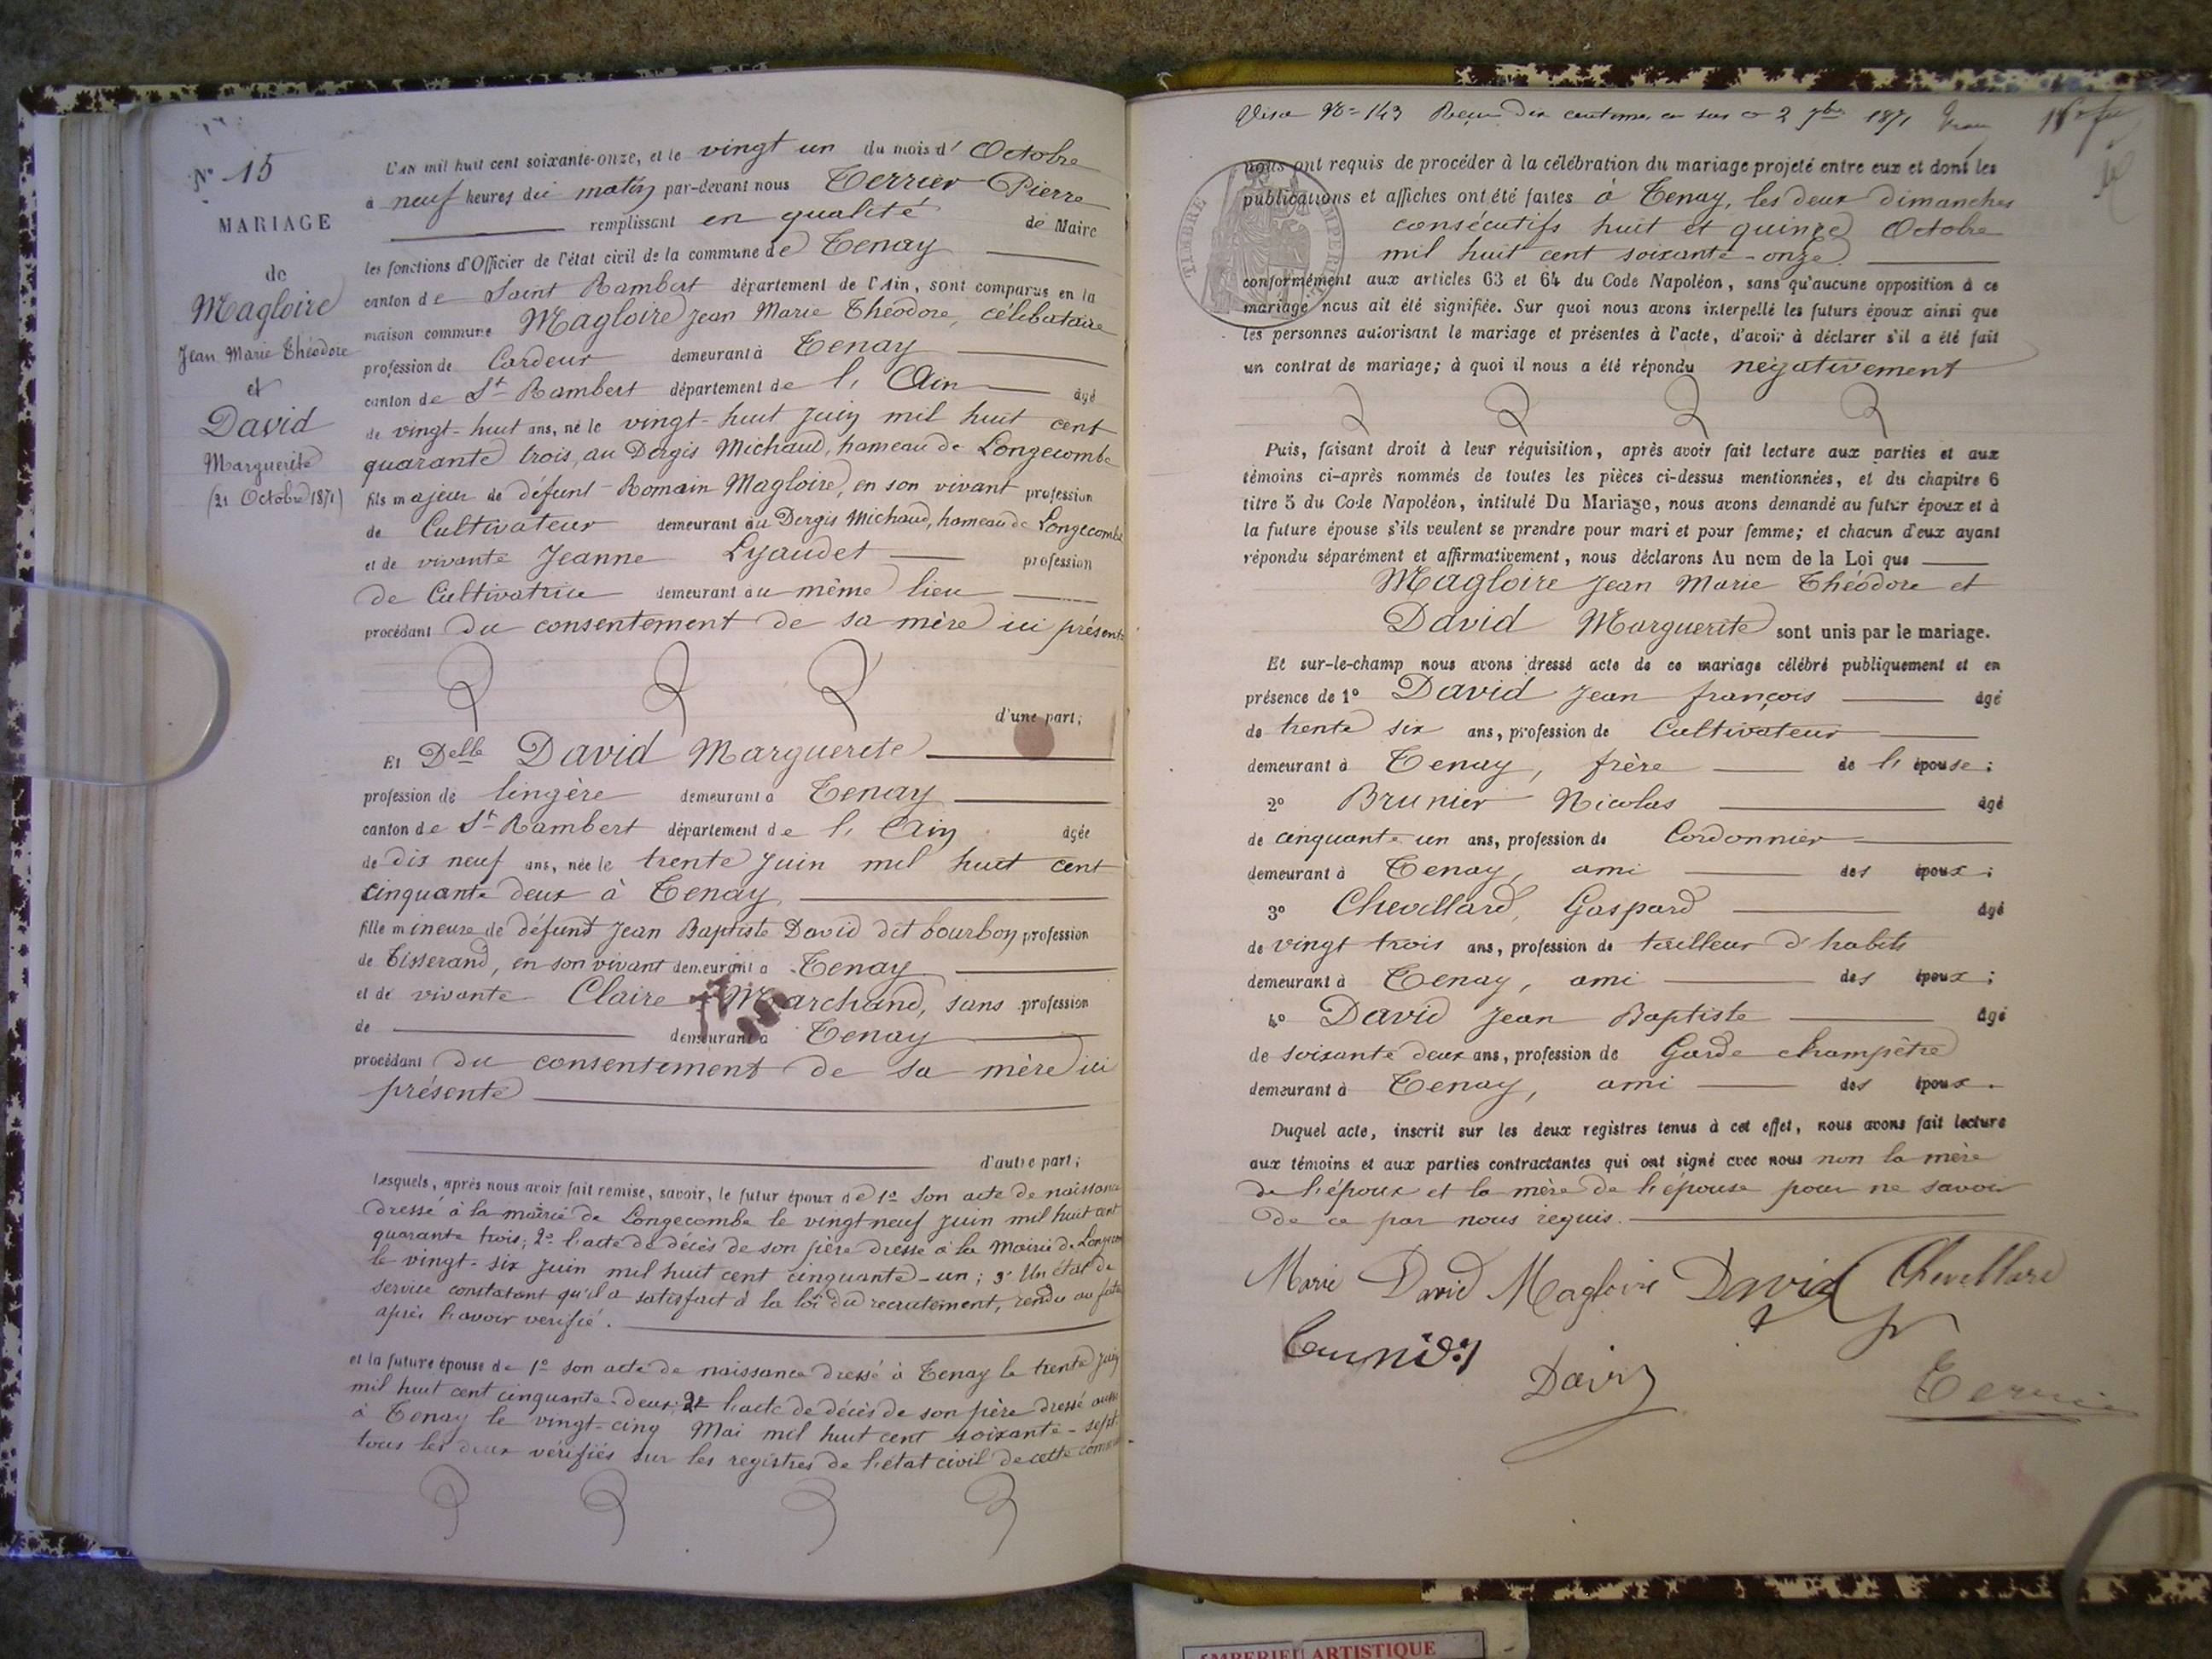 N° 15
MARIAGE
de
Magloire
Jean Marie Théodore
et
David
Marguerite
(21 Octobre 1871)
L'AN mil huit cent soixante-onze, et le vingt un du mois d' Octobre
à neuf heures du matin par-devant nous Terrier Pierre
remplissant en qualité de Maire
les fonctions d'Officier de l'état civil de la commune de Tenay
canton de Saint Rambert département de l'Ain, sont comparus en la
maison commune Magloire Jean Marie Théodore, célibataire
profession de Cardeur demeurant à Tenay
canton de St Rambert département de l' Ain âgé
de vingt-huit ans, né le vingt-huit Juin mil huit cent
quarante trois, au Dergis Michaud, hameau de Longecombe
fils majeur de défunt Romain Magloire, en son vivant profession
de Cultivateur demeurant au Dergis Michaud, hameau de Longecombe
et de vivante Jeanne Lyaudet profession
de Cultivatrice demeurant au même lieu
procédant du consentement de sa mère ici présente
d'une part;
Et Delle David Marguerite
profession de lingère demeurant à Tenay
canton de St Rambert département de l' Ain âgée
de dix neuf ans, née le trente Juin mil huit cent
cinquante deux à Tenay
fille mineure de défunt Jean Baptiste David dit bourbon profession
de Tisserand, en son vivant demeurant à Tenay
et de vivante Claire Marchand, sans profession
de demeurant à Tenay
procédant du consentement de sa mère ici
présente
d'autre part;
Lesquels, après nous avoir fait remise, savoir, le futur époux de 1° son acte de naissance
dressé à la mairie de Longecombe le vingt neuf Juin mil huit cent
quarante trois; 2° l'acte de décès de son père dressé à la Mairie de Longecombe
le vingt-six Juin mil huit cent cinquante-un; 3° Un état de
service constatant qu'il a satisfait à la loi du recrutement, rendu au futur
après l'avoir vérifié.
et la future épouse de 1° son acte de naissance dressé à Tenay le trente Juin
mil huit cent cinquante-deux; 2° l'acte de décès de son père dressé aussi
à Tenay le vingt-cinq Mai mil huit cent soixante-sept.
tous les deux vérifiés sur les registres de l'état civil de cette commune
Visa N° 143 Reçu dix centimes en sus ce 2 7bre 1871
nous ont requis de procéder à la célébration du mariage projeté entre eux et dont les
publications et affiches ont été faites à Tenay, les deux dimanches
consécutifs huit et quinze Octobre
mil huit cent soixante-onze.
TIMBRE IMPERIAL
conformément aux articles 63 et 64 du Code Napoléon, sans qu'aucune opposition à ce
mariage nous ait été signifiée. Sur quoi nous avons interpellé les futurs époux ainsi que
les personnes autorisant le mariage et présentes à l'acte, d'avoir à déclarer s'il a été fait
un contrat de mariage; à quoi il nous a été répondu négativement
Puis, faisant droit à leur réquisition, après avoir fait lecture aux parties et aux
témoins ci-après nommés de toutes les pièces ci-dessus mentionnées, et du chapitre 6
titre 5 du Code Napoléon, intitulé Du Mariage, nous avons demandé au futur époux et à
la future épouse s'ils veulent se prendre pour mari et pour femme; et chacun d'eux ayant
répondu séparément et affirmativement, nous déclarons Au nom de la Loi que
Magloire Jean Marie Théodore et
David Marguerite sont unis par le mariage.
Et sur-le-champ nous avons dressé acte de ce mariage célébré publiquement et en
présence de 1° David Jean françois âgé
de trente six ans, profession de Cultivateur
demeurant à Tenay, frère de l' épouse;
2° Brunier Nicolas âgé
de cinquante un ans, profession de Cordonnier
demeurant à Tenay, ami des époux;
3° Chevillard, Gaspard âgé
de vingt trois ans, profession de tailleur d'habits
demeurant à Tenay, ami des époux;
4° David Jean Baptiste âgé
de soixante deux ans, profession de Garde champêtre
demeurant à Tenay, ami des époux.
Duquel acte, inscrit sur les deux registres tenus à cet effet, nous avons fait lecture
aux témoins et aux parties contractantes qui ont signé avec nous non la mère
de l'époux et la mère de l'épouse pour ne savoir
de ce par nous requis.
Marie David Magloire David Chevillard
David
Terrier
AMBERIEU ARTISTIQUE